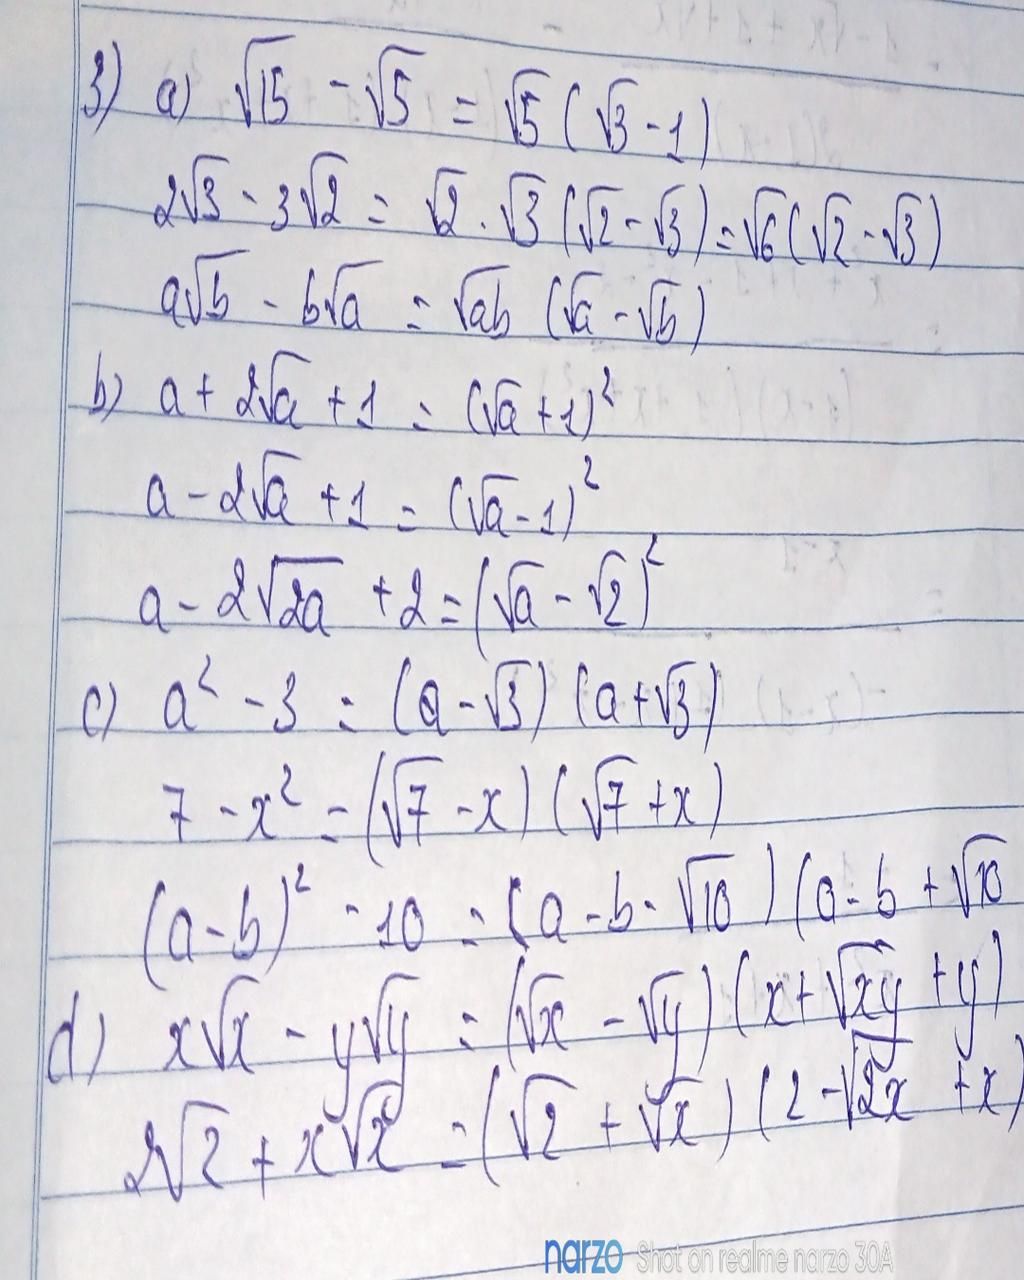 3) a) √15 - √5 = √5 (√3 - 1)
2√3 - 3√2 = √2 . √3 (√2 - √3) = √6 (√2 - √3)
a√b - b√a = √ab (√a - √b)
b) a + 2√a + 1 = (√a + 1)²
a - 2√a + 1 = (√a - 1)²
a - 2√2a + 2 = (√a - √2)²
c) a² - 3 = (a - √3) (a + √3)
7 - x² = (√7 - x) (√7 + x)
(a - b)² - 10 = (a - b - √10) (a - b + √10
d) x√x - y√y = (√x - √y) (x + √xy + y)
2√2 + x√x = (√2 + √x) (2 - √2x + x)
narzo Shot on realme narzo 30A